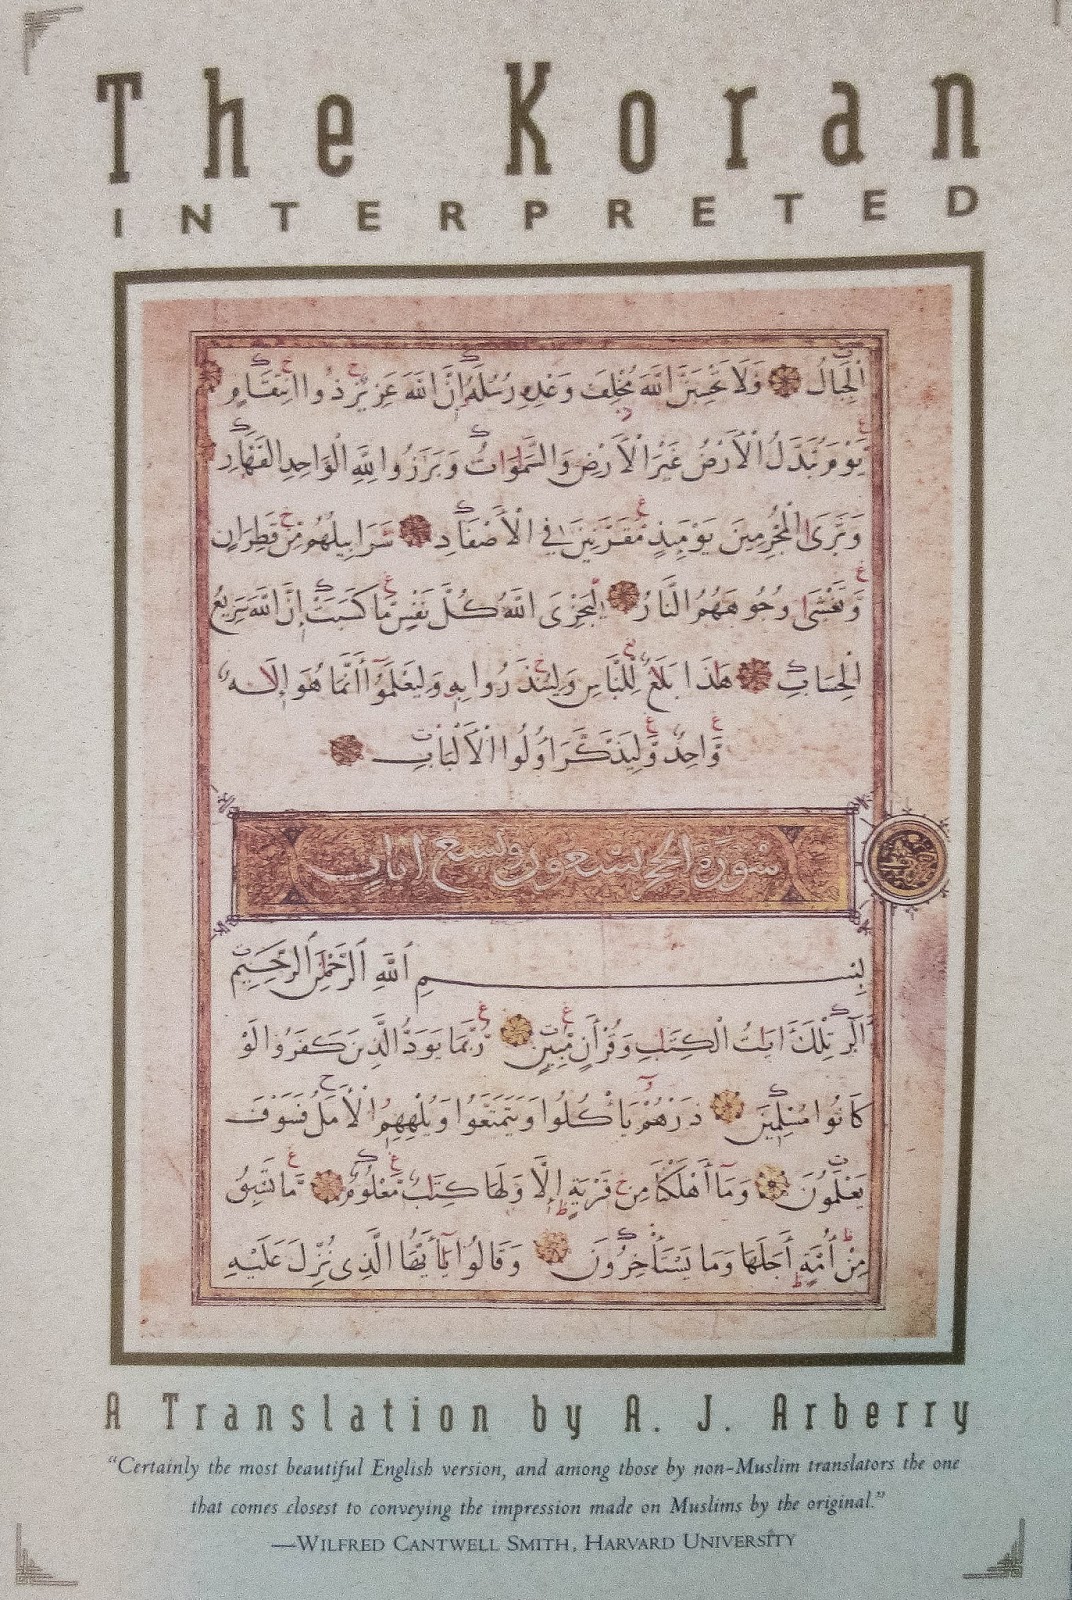 The Koran
INTERPRETED
الْجِبَالُ وَلَا تَحْسَبَنَّ اللَّهَ مُخْلِفَ وَعْدِهِ رُسُلَهُ إِنَّ اللَّهَ عَزِيزٌ ذُو انْتِقَامٍ
يَوْمَ تُبَدَّلُ الْأَرْضُ غَيْرَ الْأَرْضِ وَالسَّمٰوَاتُ وَبَرَزُوا لِلَّهِ الْوَاحِدِ الْقَهَّارِ
وَتَرَى الْمُجْرِمِينَ يَوْمَئِذٍ مُقَرَّنِينَ فِي الْأَصْفَادِ سَرَابِيلُهُمْ مِنْ قَطِرَانٍ
وَتَغْشَى وُجُوهَهُمُ النَّارُ لِيَجْزِيَ اللَّهُ كُلَّ نَفْسٍ مَا كَسَبَتْ إِنَّ اللَّهَ سَرِيعُ
الْحِسَابِ هَذَا بَلَاغٌ لِلنَّاسِ وَلِيُنْذَرُوا بِهِ وَلِيَعْلَمُوا أَنَّمَا هُوَ إِلَهٌ
وَاحِدٌ وَلِيَذَّكَّرَ أُولُوا الْأَلْبَابِ
سورة الحجر تسعون وتسع ايات
بِسْمِ اللَّهِ الرَّحْمٰنِ الرَّحِيمِ
الٓر تِلْكَ اٰيٰتُ الْكِتٰبِ وَقُرْاٰنٍ مُبِينٍ رُبَمَا يَوَدُّ الَّذِينَ كَفَرُوا لَوْ
كَانُوا مُسْلِمِينَ ذَرْهُمْ يَأْكُلُوا وَيَتَمَتَّعُوا وَيُلْهِهِمُ الْأَمَلُ فَسَوْفَ
يَعْلَمُونَ وَمَا أَهْلَكْنَا مِنْ قَرْيَةٍ إِلَّا وَلَهَا كِتٰبٌ مَعْلُومٌ مَا تَسْبِقُ
مِنْ أُمَّةٍ أَجَلَهَا وَمَا يَسْتَأْخِرُونَ وَقَالُوا يَا أَيُّهَا الَّذِي نُزِّلَ عَلَيْهِ
A Translation by A. J. Arberry
“Certainly the most beautiful English version, and among those by non-Muslim translators the one
that comes closest to conveying the impression made on Muslims by the original.”
—WILFRED CANTWELL SMITH, HARVARD UNIVERSITY